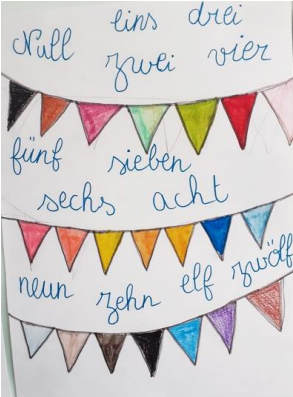 Null eins drei
zwei vier
fünf sieben
sechs acht
neun zehn elf zwölf